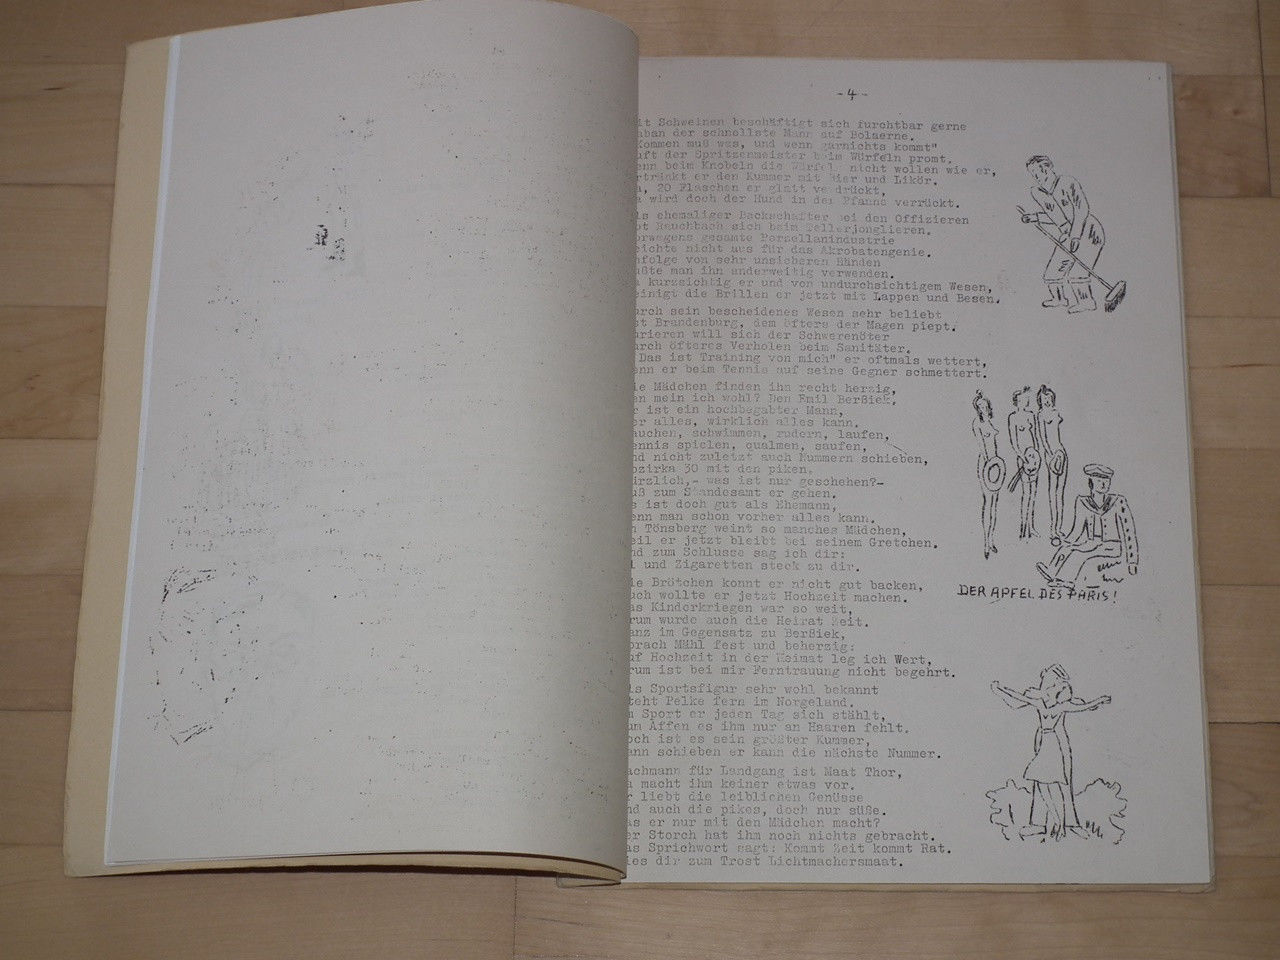 -4-
it Schweinen beschäftigt sich furchtbar gerne
aban der schnellste Mann auf Bolaerne.
Kommen muß was, und wenn garnichts kommt"
uft der Spritzenmeister beim Würfeln promt.
enn beim Knobeln die Würfel nicht wollen wie er,
rtränkt er den Kummer mit Bier und Likör.
a, 20 Flaschen er glatt verdrückt,
a wird doch der Hund in der Pfanne verrückt.
ls ehemaliger Backschafter bei den Offizieren
bt Rauchbach sich beim Tellerjonglieren.
orwegens gesamte Porzellanindustrie
eichte nicht aus für das Akrobatengenie.
nfolge von sehr unsicheren Händen
ußte man ihn anderweitig verwenden.
a kurzsichtig er und von undurchsichtigem Wesen,
einigt die Brillen er jetzt mit Lappen und Besen.
urch sein bescheidenes Wesen sehr beliebt
st Brandenburg, dem öfters der Magen piept.
urieren will sich der Schwerenöter
urch öfteres Verholen beim Sanitäter.
Das ist Training von mich" er oftmals wettert,
enn er beim Tennis auf seine Gegner schmettert.
ie Mädchen finden ihn recht herzig,
en mein ich wohl? Den Emil Berßiek.
r ist ein hochbegabter Mann,
er alles, wirklich alles kann.
auchen, schwimmen, rudern, laufen,
ennis spielen, qualmen, saufen,
nd nicht zuletzt auch Nummern schieben,
ozirka 30 mit den piken.
ürzlich,- was ist nur geschehen?-
uß zum Standesamt er gehen.
s ist doch gut als Ehemann,
enn man schon vorher alles kann.
n Tönsberg weint so manches Mädchen,
eil er jetzt bleibt bei seinem Gretchen.
nd zum Schlusse sag ich dir:
l und Zigaretten steck zu dir.
ie Brötchen konnt er nicht gut backen,
uch wollte er jetzt Hochzeit machen.
as Kinderkriegen war so weit,
rum wurde auch die Heirat Zeit.
anz im Gegensatz zu Berßiek,
prach Mühl fest und beherzig:
uf Hochzeit in der Heimat leg ich Wert,
rum ist bei mir Ferntrauung nicht begehrt.
ls Sportsfigur sehr wohl bekannt
teht Pelke fern im Norgeland.
m Sport er jeden Tag sich stählt,
um Affen es ihm nur an Haaren fehlt.
och ist es sein größter Kummer,
ann schieben er kann die nächste Nummer.
achmann für Landgang ist Maat Thor,
a macht ihm keiner etwas vor.
r liebt die leiblichen Genüsse
nd auch die pikes, doch nur süße.
as er nur mit den Mädchen macht?
er Storch hat ihm noch nichts gebracht.
as Sprichwort sagt: Kommt Zeit kommt Rat.
ies dir zum Trost Lichtmachersmaat.
DER APFEL DES PARIS!